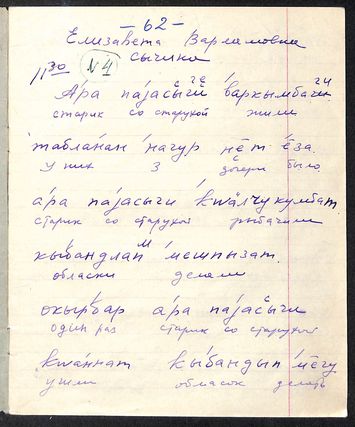 — 62 —
Елизавета Варламовна
Сычина
11 30 №4
А́ра паjасы́гӣ ва́ркымбаг
старик со старухой жили
таблáнан на́гур не̄т ē̇за.
у них 3 дочери было.
а́ра паjасы́чи kwӓ́лчукумбат
старик со старухой рыбачили
кы́бандлам ме́шпызат.
обласки делали
окы́рбар а́ра паjасы́чи
один раз старик со старухой
kwа́ннат кы́бандып ме̄́гу
ушли обласок делать